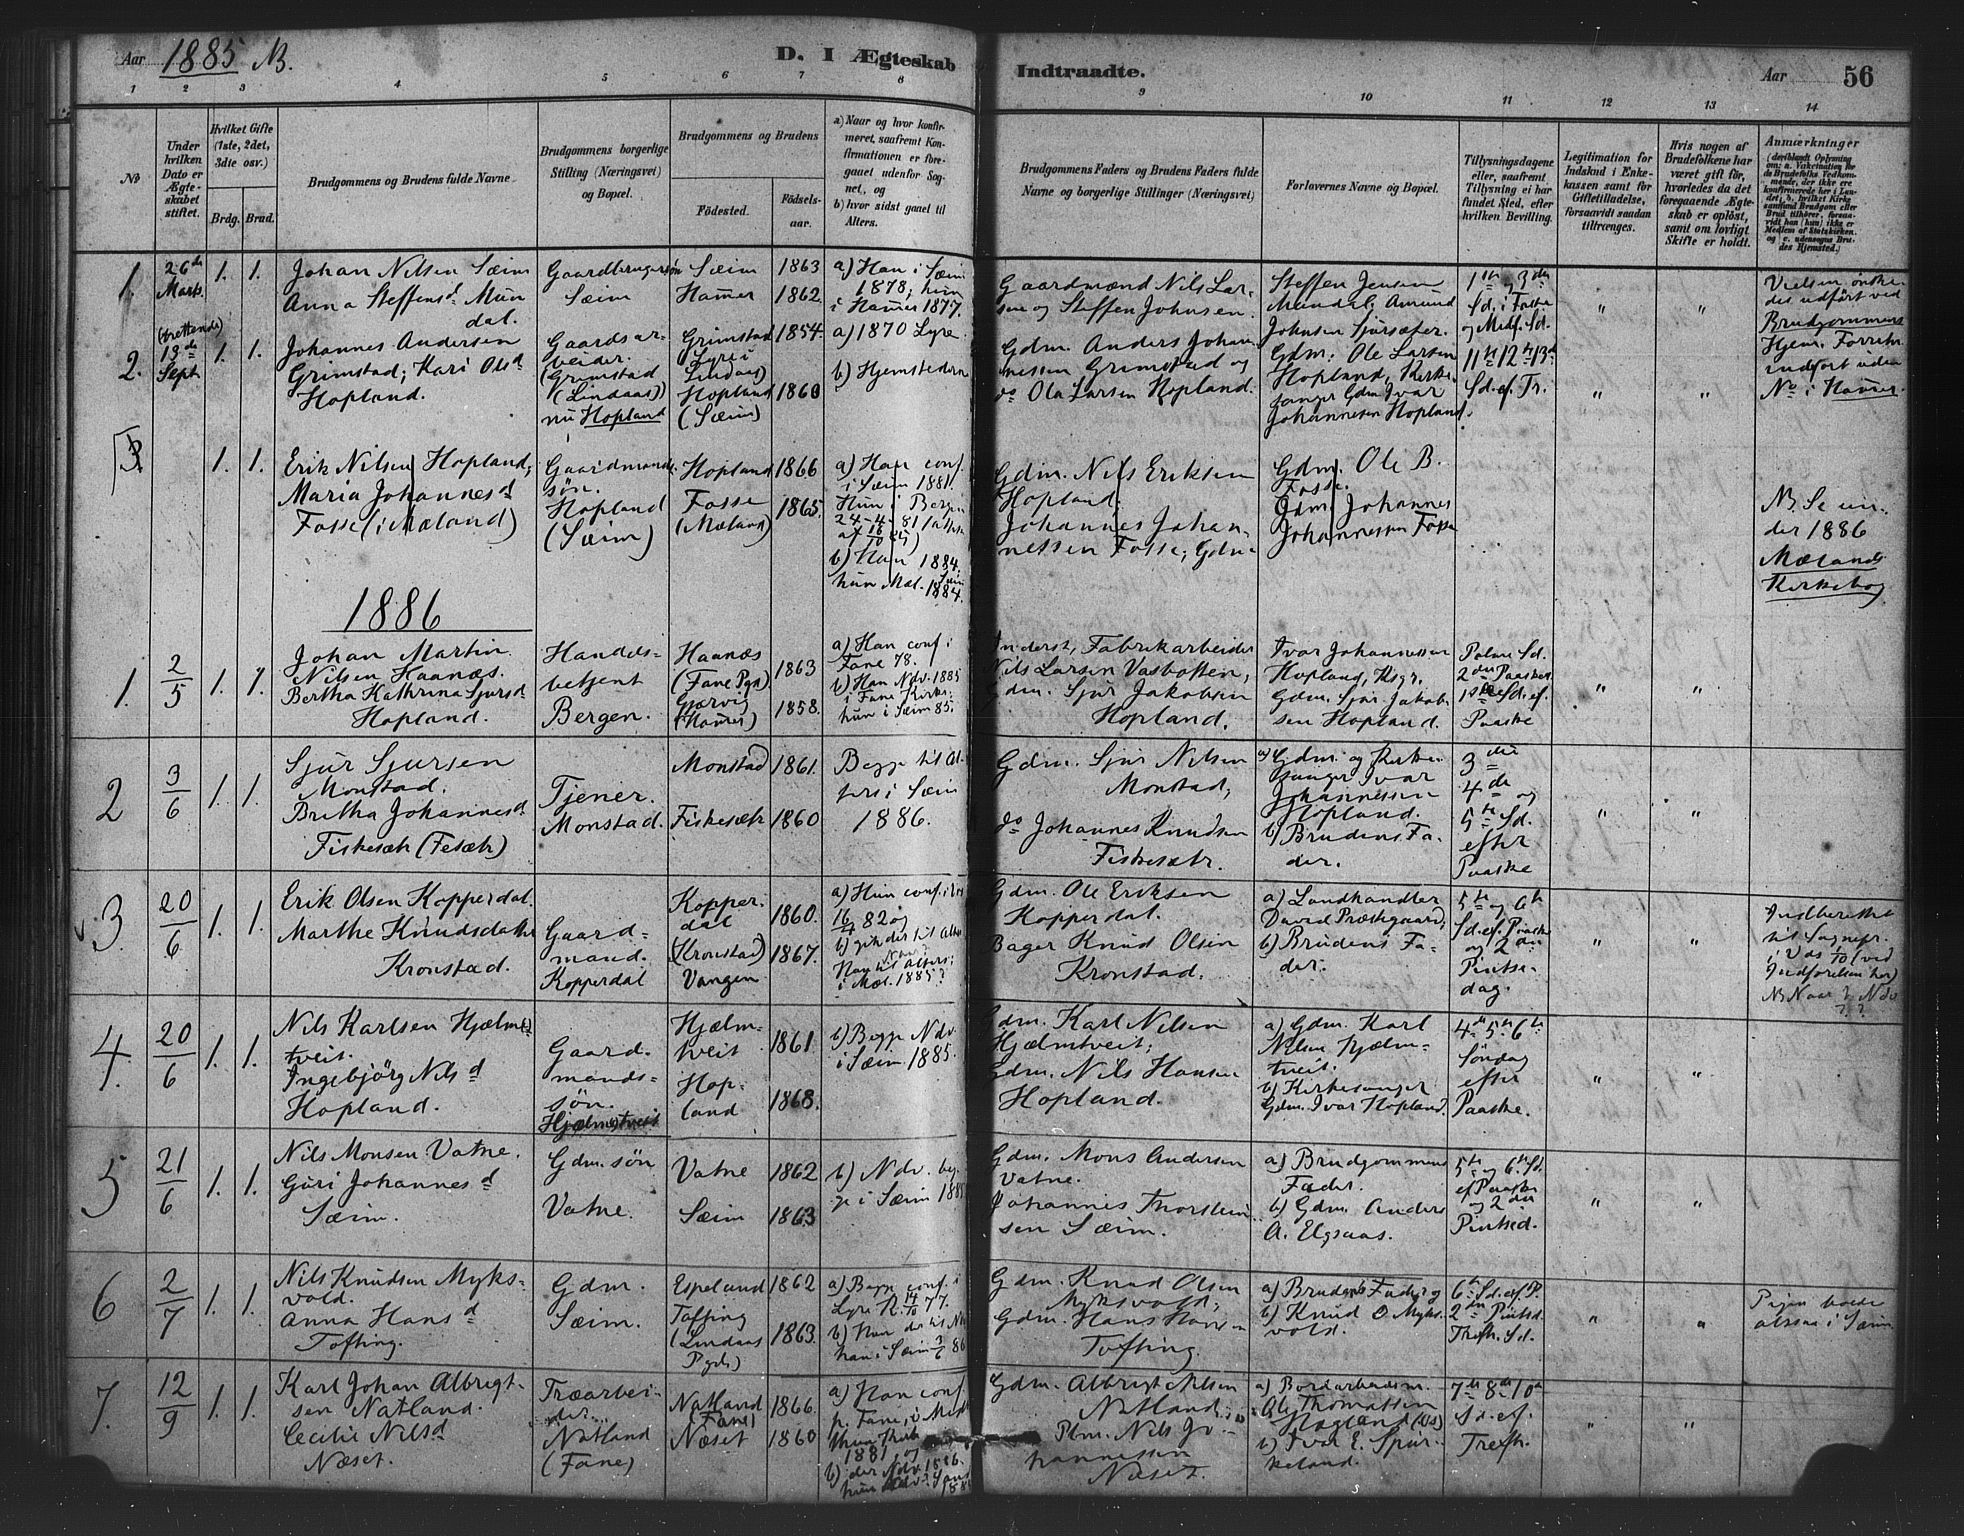 Aar 1885 B.
D. I Ægteskab Indtraadte.
Aar 56
1 2 3 4 5 6 7 8 9 10 11 12 13 14
No.
Under hvilken Dato er Ægteskabet stiftet.
Hvilket Gifte (1ste, 2det, 3die osv.)
Brdg. Brud.
Brudgommens og Brudens fulde Navne
Brudgommens borgerlige Stilling (Næringsvei) og Bopæl.
Brudgommens og Brudens
Födested.
Födselsaar.
a) Naar og hvor konfirmeret, saafremt Konfirmationen er foregaaet udenfor Sognet, og
b) hvor sidst gaaet til Alters.
Brudgommens Faders og Brudens Faders fulde Navne og borgerlige Stillinger (Næringsvei)
Forlovernes Navne og Bopæl.
Tillysningsdagene eller, saafremt Tillysning ei har fundet Sted, efter hvilken Bevilling.
Legitimation for Indskud i Enkekassen samt for Giftetilladelse, forsaavidt saadan tiltrænges.
Hvis nogen af Brudefolkene har været gift før, hvorledes da det foregaaende Ægteskab er oplöst, samt om lovligt Skifte er holdt.
Anmærkninger
1. 26de Marts 1. 1.
Johan Nilsen Sæim
Anna Steffensd. Mundal.
Gaardbrugersön Sæim
Sæim 1863
Hamer 1862.
a) Han i Sæim 1878, hun i Hamer 1877.
Gaardmænd Nils Larsen og Steffen Johnsen.
Steffen Jensen Mundal, Amund Johnsen Sjursæter.
1ste og 3die Sd. i Faste og Midf. Sd.
" "
Vielsen önskedes udfört ved Brudgommens Hjem. Forretn. indfört uden No i Hamer.
2. (trettende) 13de Sept. 1. 1.
Johannes Andersen Grimstad; Kari Olsd Hopland.
Gaardsarbeider. (Grimstad (Lindaas)) nu Hopland
Grimstad Lyre i Lindaas) 1854.
Hopland (Sæim) 1860
a) 1870 Lyre
b) Hjemstederne
Gdm. Anders Johannessen Grimstad og
do Ola Larsen Hopland.
Gdm. Ole Larsen Hopland, Kirkesanger Gdm Ivar Johannesen Hopland.
11te 12te 13d Sd. ef. Tr.
" "
3. 1. 1.
Erik Nilsen Hopland,
Maria Johannesd Fosse (i Mæland)
Gaardmandssön. Hopland (Sæim)
Hopland 1866
Fosse (Mæland) 1865.
a) Han conf. i Sæim 1881. Hun i Bergen 24-4-81
b) Han 1884 Sæim hun Mæl. 1884.
Gdm. Nils Eriksen Hopland.
Johannes Johannessen Fosse, Gdm.
Gdm. Ole B. Fosse.
Gdm. Johannes Johannessen Fosse
B. Se under 1886 Mælands Kirkebog
1886
1. 2/5 1. 1.
Johan Martin Nilsen Haanæs.
Bertha Kathrina Sjursd Hopland.
Handelsbetjent Bergen.
Haanæs (Fane Pgd) 1863
Gjærvig (Hamer) 1858.
a) Han conf. i Fane 78.
b) Han Ndv. 1885 i Fane Kirke, hun i Sæim 85.
Inderst, Fabrikarbeider Nils Larsen Vasbotten,
Gdm. Sjur Jakobsen Hopland.
Ivar Johannessen Hopland, Ksgr.
Gdm. Sjur Jakobsen Hopland.
Palme Sd. 2den Paasked. 1ste Sd. ef. Paaske
" "
2 3/6 1. 1.
Sjur Sjursen Monstad.
Britha Johannesd Fiskesætr (Fesætr)
Tjener. Monstad.
Monstad 1861.
Fiskesætr 1860
Begge til Alters i Sæim 1886.
Gdm. Sjur Nilsen Monstad,
do Johannes Knudsen Fiskesætr.
a) Gdm. og Kirkesanger Ivar Johannessen Hopland.
b) Brudens Fader.
3die 4de og 5te Sd. efter Paaske
" "
3 20/6 1. 1.
Erik Olsen Kopperdal.
Marthe Knudsdatter Kronstad.
Gaardmand. Kopperdal
Kopperdal 1860.
(Kronstad) Vangen 1867.
a) Hun conf. i 16/4 82 og
b) gik der til Alter. Han til Alters i Mæl. 1885?
Gdm. Ole Eriksen Kopperdal.
Bager Knud Olsen Kronstad.
a) Landhandler David Præstgaard,
b) Brudens Fader.
5te og 6te Sd. ef. Paaske og 2den Pintsedag.
" "
Indberettet til Sognepr.
4. 20/6 1. 1.
Nils Karlsen Hjelmtveit.
Ingebjörg Nilsd Hopland.
Gaardmandssön. Hjælmetveit
Hjælmtveit 1861.
Hopland 1868.
b) Begge Ndv. i Sæim 1885.
Gdm. Karl Nilsen Hjælmtveit;
Gdm. Nils Hansen Hopland.
a) Gdm. Karl Nilsen Hjælmtveit.
b) Kirkesanger Gdm. Ivar Hopland.
4de 5te 6te Söndag efter Paaske.
" "
5 21/6 1. 1.
Nils Monsen Vatne.
Guri Johannesd Sæim.
Gdm. sön Vatne.
Vatne 1862
Sæim 1863
b) Ndv. begge i Sæim 1885
Gdm. Mons Andersen Vatne.
Johannes Thorsteinsen Sæim.
a) Brudgommens Fader.
b) Gdm. Anders A. Elgsaas.
5te og 6te Sd. ef Paaske og 2den Pintsed.
" "
6 2/7 1. 1.
Nils Knudsen Myksvold.
Anna Hansd Tofting.
Gdm. Sæim.
Espeland 1862
Tofting (Lindaas Pgd.) 1863.
a) Begge conf. i Lyre K. 14/10 77.
Gdm. Knud Olsen Myksvold;
Gdm. Hans Hansen Tofting.
a) Brudens Fader og
b) Knud O Myksvold.
6te Sd. ef. P. 2den Pintsd. Trefh. Sd.
" "
Pigen boede ogsaa i Sæim
7. 12/9 1. 1.
Karl Johan Albrigtsen Natland.
Cecilie Nilsd Næset.
Træarbeider. Natland (Fane)
Natland (Fane) 1866.
Næset 1860
Gdm. Albrigt Nilsen Natland;
Plm. Nils Johannessen Næset.
Ole Thomassen Hagland
b) Ivar E. Spurkeland.
7de 8de 10de Sd. ef. Trefh.
" "